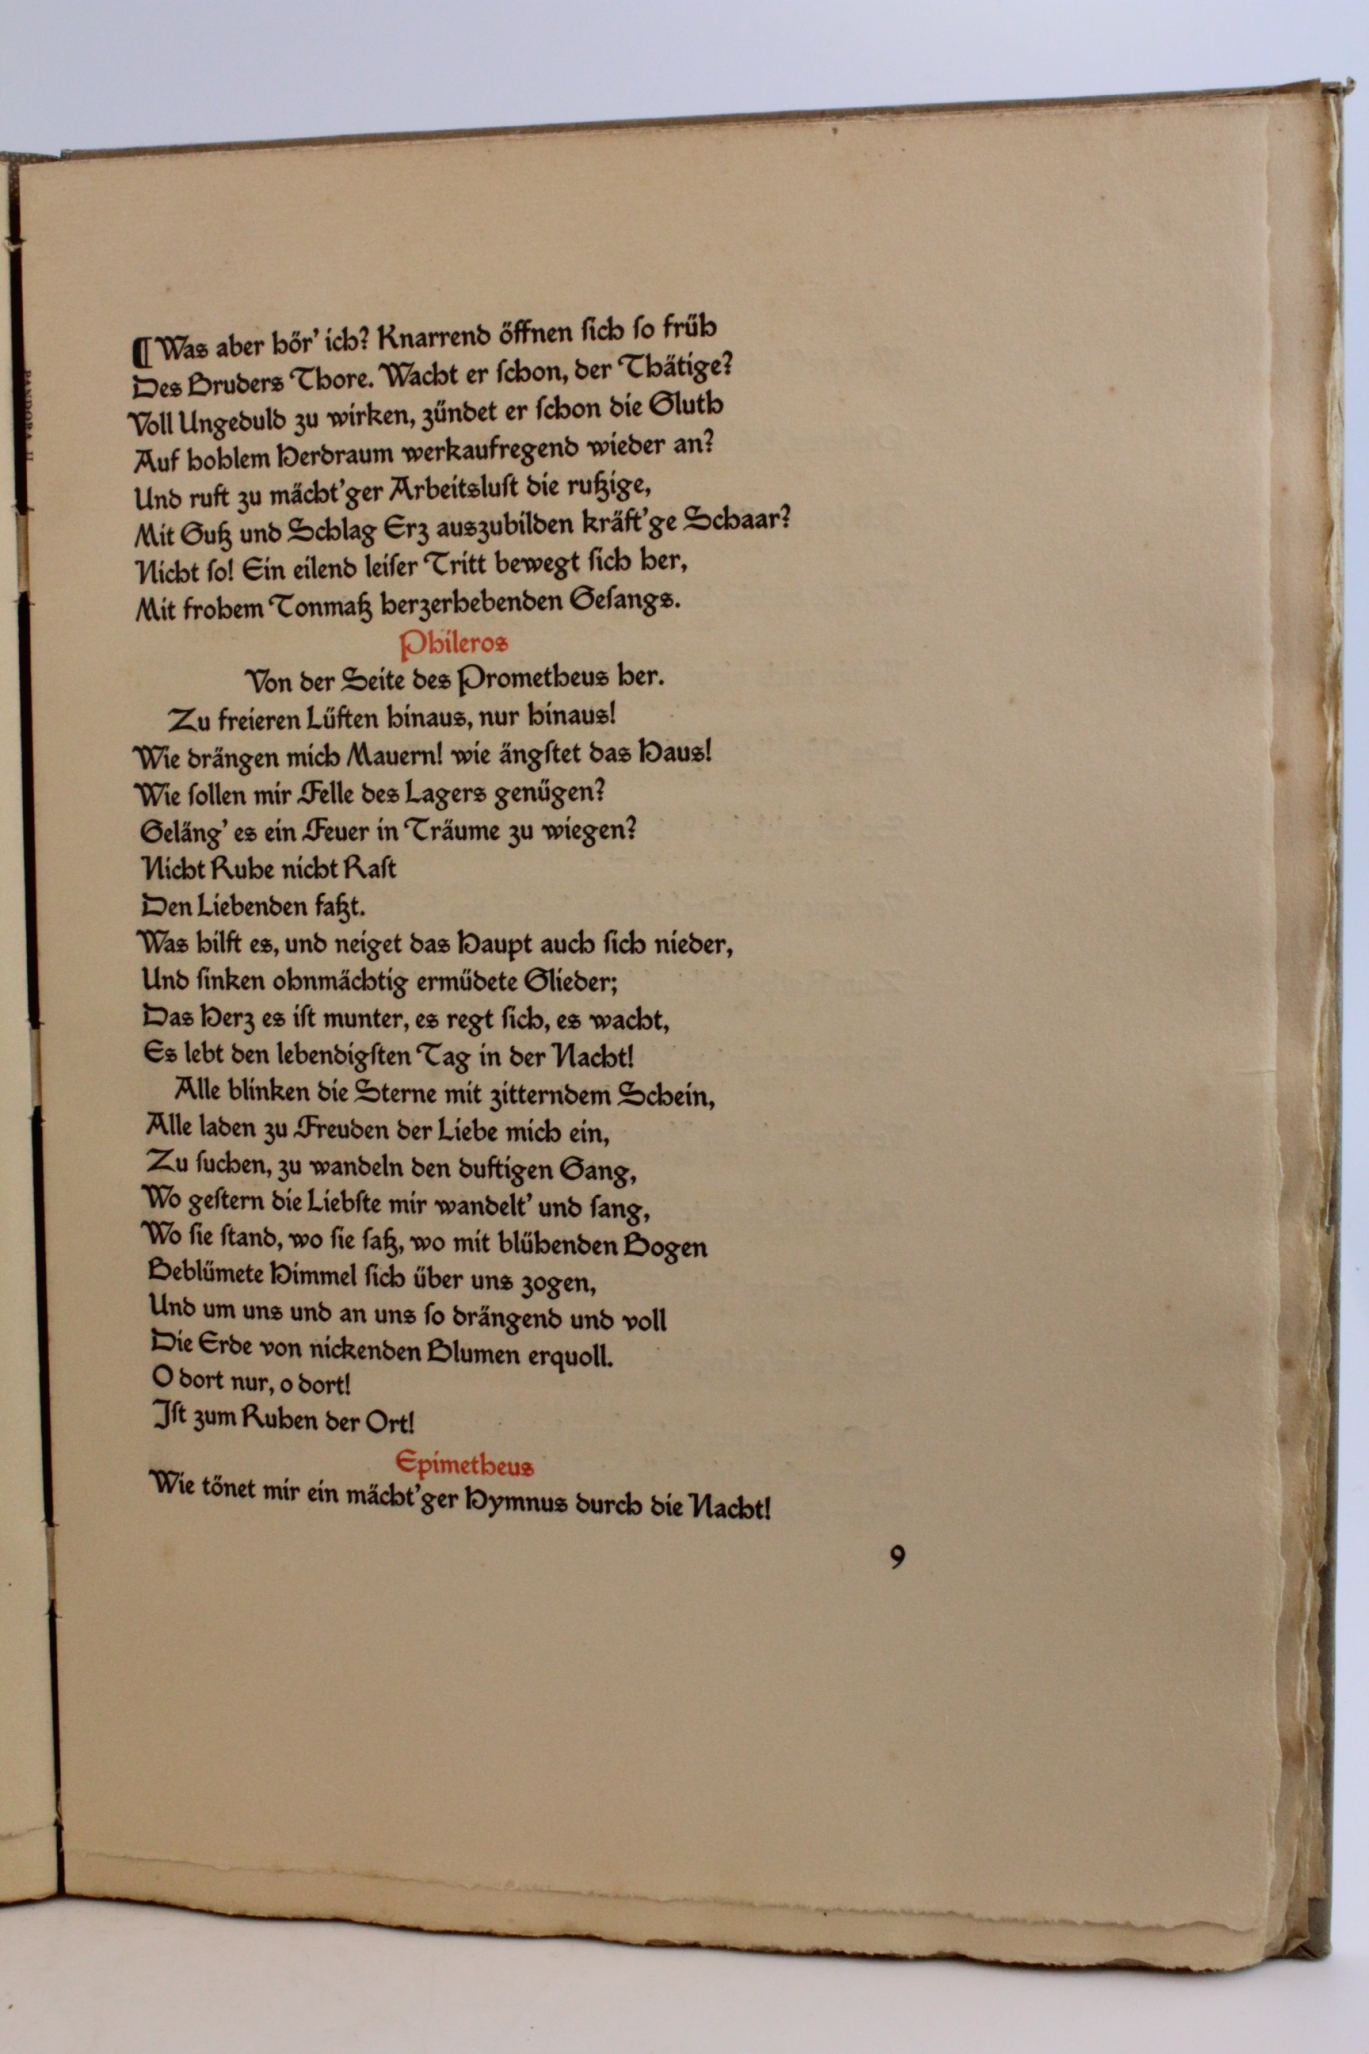 ¶ Was aber hör’ ich? Knarrend öffnen ſich ſo früh
Des Bruders Thore. Wacht er ſchon, der Thätige?
Voll Ungeduld zu wirken, zündet er ſchon die Gluth
Auf hohlem Herdraum werkaufregend wieder an?
Und ruft zu mächt’ger Arbeitsluſt die rußige,
Mit Guß und Schlag Erz auszubilden kräft’ge Schaar?
Nicht ſo! Ein eilend leiſer Tritt bewegt ſich her,
Mit frohem Tonmaß herzerhebenden Geſangs.
Phileros
Von der Seite des Prometheus her.
Zu freieren Lüften hinaus, nur hinaus!
Wie drängen mich Mauern! wie ängſtet das Haus!
Wie ſollen mir Felle des Lagers genügen?
Geläng’ es ein Feuer in Träume zu wiegen?
Nicht Ruhe nicht Raſt
Den Liebenden faßt.
Was hilft es, und neiget das Haupt auch ſich nieder,
Und ſinken ohnmächtig ermüdete Glieder;
Das Herz es iſt munter, es regt ſich, es wacht,
Es lebt den lebendigſten Tag in der Nacht!
Alle blinken die Sterne mit zitterndem Schein,
Alle laden zu Freuden der Liebe mich ein,
Zu ſuchen, zu wandeln den duftigen Gang,
Wo geſtern die Liebſte mir wandelt’ und ſang,
Wo ſie ſtand, wo ſie ſaß, wo mit blühenden Bogen
Beblümete Himmel ſich über uns zogen,
Und um uns und an uns ſo drängend und voll
Die Erde von nickenden Blumen erquoll.
O dort nur, o dort!
Iſt zum Ruhen der Ort!
Epimetheus
Wie tönet mir ein mächt’ger Hymnus durch die Nacht!
9